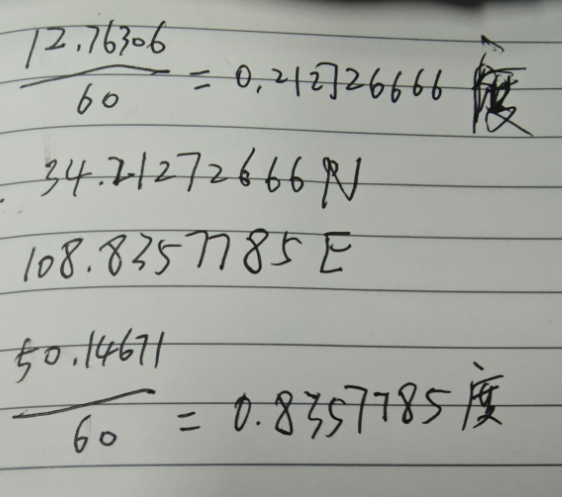 12.76306/60 = 0.212726666 度
34.21272666 N
108.8357785 E
50.14671/60 = 0.8357785 度